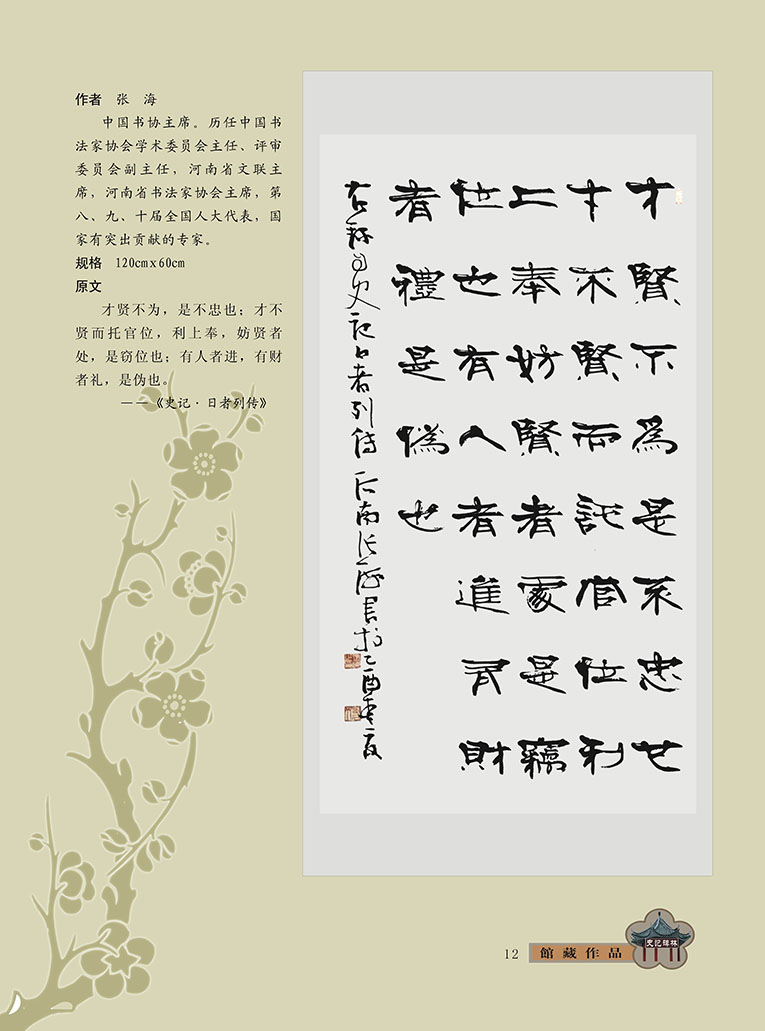 作者 张 海
中国书协主席。历任中国书
法家协会学术委员会主任、评审
委员会副主任，河南省文联主
席，河南省书法家协会主席，第
八、九、十届全国人大代表，国
家有突出贡献的专家。
规格 120cmx60cm
原文
才贤不为，是不忠也；才不
贤而托官位，利上奉，妨贤者
处，是窃位也；有人者进，有财
者礼，是伪也。
——《史记·日者列传》
才賢不為是不忠也
才不賢而託官位利
上奉妨賢者處是竊
位也有人者進有財
者禮是偽也
右錄史記日者列傳河南張海書於乙酉
12 館藏作品
史記碑林